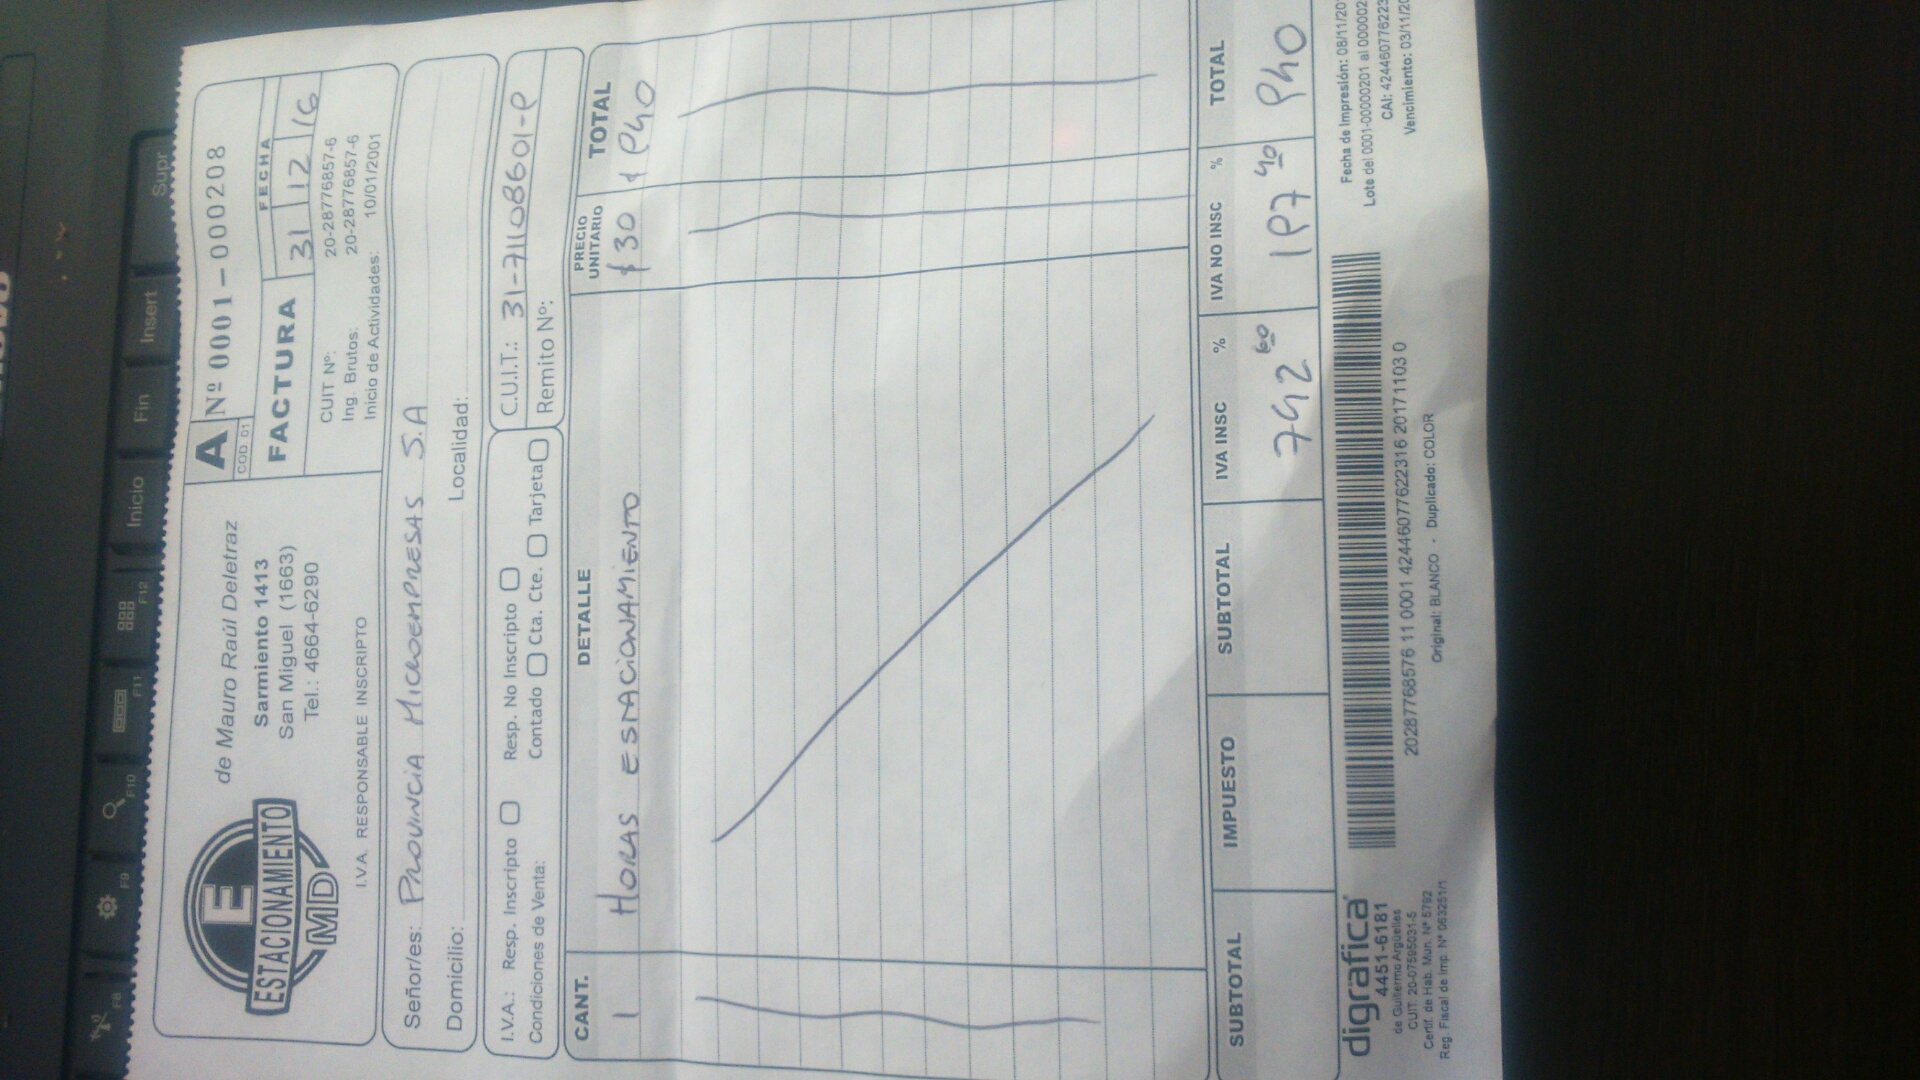 E
ESTACIONAMIENTO
MD
de Mauro Raúl Deletraz
Sarmiento 1413
San Miguel (1663)
Tel.: 4664-6290
I.V.A. RESPONSABLE INSCRIPTO
A
COD. 01
Nº 0001-000208
FACTURA
FECHA
31 12 16
CUIT Nº: 20-28776857-6
Ing. Brutos: 20-28776857-6
Inicio de Actividades: 10/01/2001
Señor/es: PROVINCIA MICROEMPRESAS S.A
Domicilio: Localidad:
I.V.A.: Resp. Inscripto Resp. No Inscripto
Condiciones de Venta: Contado Cta. Cte. Tarjeta
C.U.I.T.:
Remito Nº:
CANT. DETALLE PRECIO UNITARIO TOTAL
1 HORAS ESTACIONAMIENTO $30
SUBTOTAL IMPUESTO SUBTOTAL IVA INSC % IVA NO INSC % TOTAL
digráfica
4451-6181
de Guillermo Argüelles
CUIT: 20-07595031-5
Certif. de Hab. Mun. Nº 5792
Reg. Fiscal de Imp. Nº 063251/1
20287768576 11 0001 42446077622316 20171103 0
Original: BLANCO - Duplicado: COLOR
Fecha de Impresión: 08/11/20
Lote del 0001-00000201 al 000002
CAI: 424460776223
Vencimiento: 03/11/20
Supr
Insert
Fin
Inicio
F12
F11
F10
F9
F8